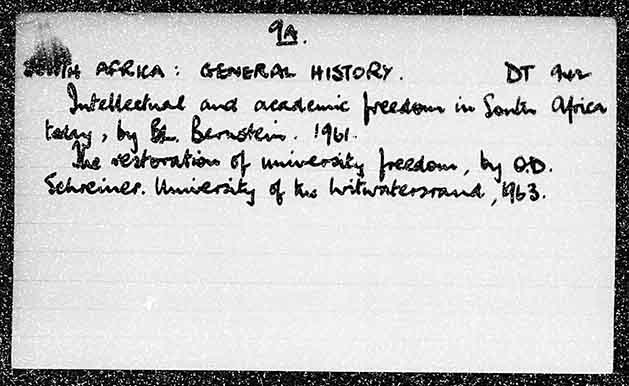 9A.
SOUTH AFRICA: GENERAL HISTORY. DT 942
Intellectual and academic freedom in South Africa
today, by Bernstein. 1961.
The restoration of university freedom, by O.D.
Schreiner. University of the Witwatersrand, 1963.